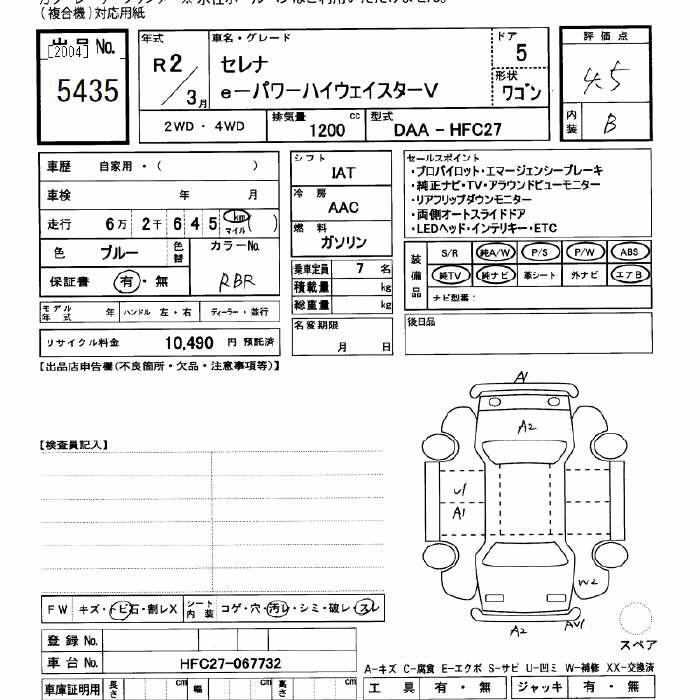 (複合機)対応用紙
出品 No.
[2004]
5435
年式
R2/3月
車名・グレード
セレナ
e-パワーハイウェイスターV
ドア
5
形状
ワゴン
評価点
4.5
内装
B
2WD・4WD
排気量
1200 cc
型式
DAA-HFC27
車歴 自家用・( )
車検 年 月
走行 6万 2千 6 4 5 km マイル ( )
色 ブルー 色替
カラーNo.
RBR
保証書 有・無
モデル年式 年 ハンドル 左・右 ディーラー・並行
リサイクル料金 10,490 円 預託済
シフト
IAT
冷房
AAC
燃料
ガソリン
乗車定員 7 名
積載量 kg
総重量 kg
名変期限
月 日
セールスポイント
・プロパイロット・エマージェンシーブレーキ
・純正ナビ・TV・アラウンドビューモニター
・リアフリップダウンモニター
・両側オートスライドドア
・LEDヘッド・インテリキー・ETC
装備品
S/R 純A/W P/S P/W ABS
純TV 純ナビ 革シート 外ナビ エアB
ナビ型番:
後日品
【出品店申告欄(不良箇所・欠品・注意事項等)】
【検査員記入】
A1
A2
U1
A1
W2
A2
AU1
スペア
FW キズ・トビ石・割レX
シート内装 コゲ・穴・汚レ・シミ・破レ・スレ
登録 No.
車台 No. HFC27-067732
車庫証明用 長さ cm 幅 cm 高さ cm
A-キズ C-腐食 E-エクボ S-サビ U-凹ミ W-補修 XX-交換済
工具 有・無 ジャッキ 有・無